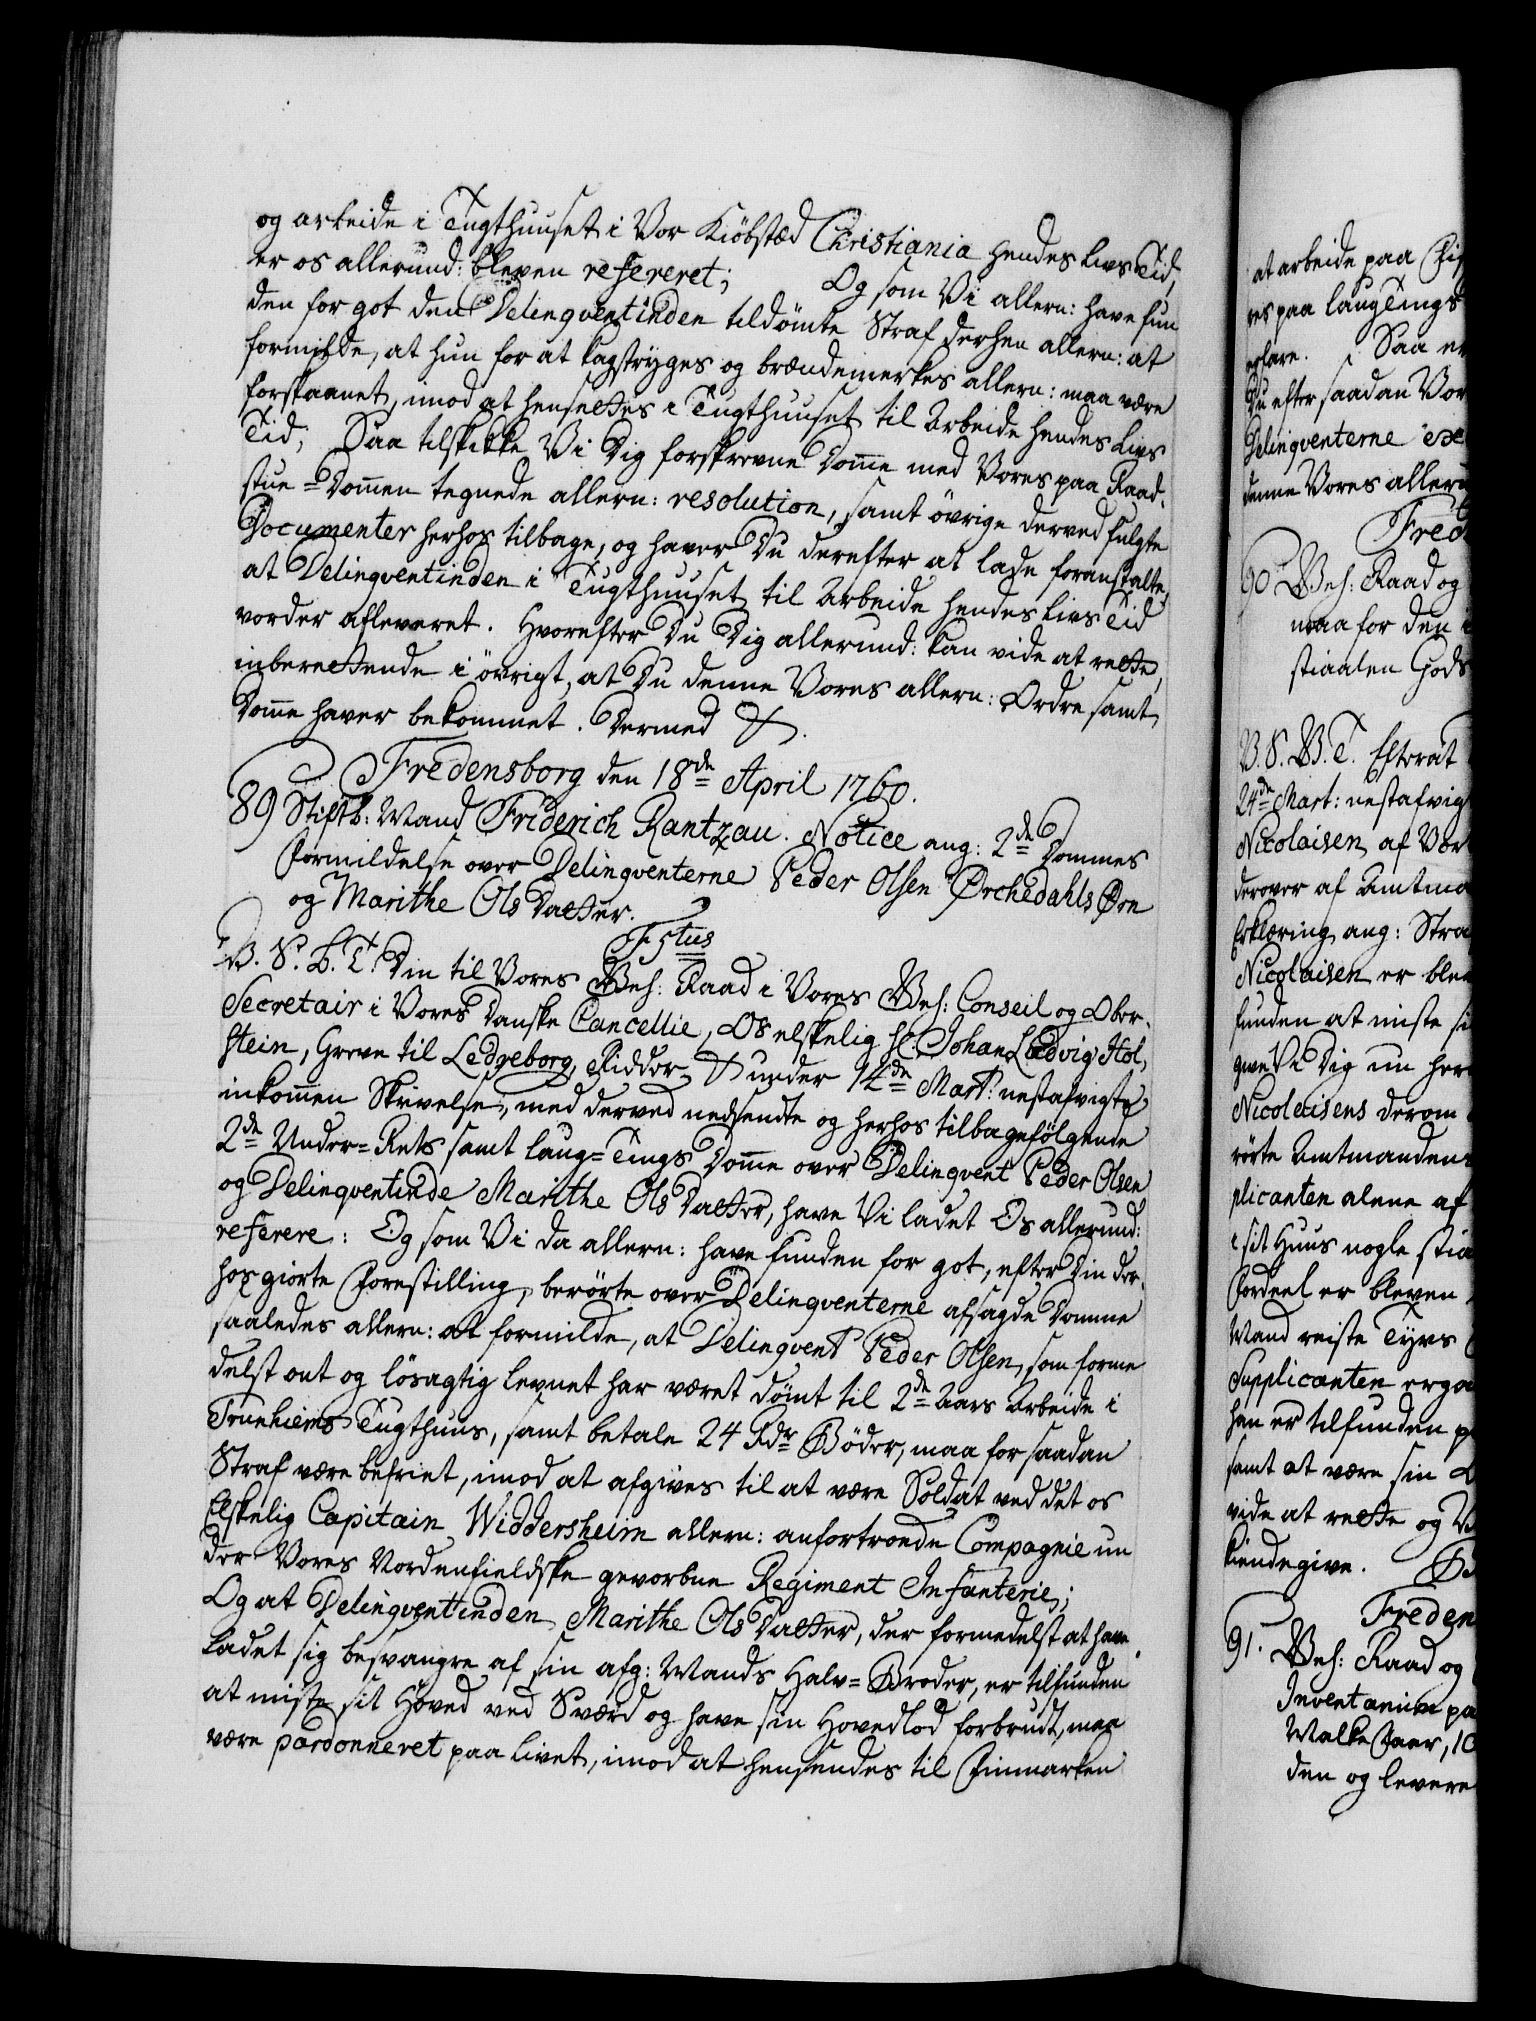 og arbeide i Tugthuuset i Vor Kiöbstæd Christiania hendes Livs Tid,
er os allerund: bleven refereret; Og som Vi allern: have fun
den for got den Delinqventinden tildömte Straf derhen allern: at
formilde, at hun for at kagstryges og brændemerkes allern: maa være
forskaanet, imod at hensettes i Tugthuuset til Arbeide hendes Livs
Tid; Saa tilskikke Vi Dig forskrevne Domme med Vores paa Raad-
stue-Dommen tegnede allern: resolution, samt övrige derved fulgte
Documenter herhos tilbage, og haver Du derefter at lade foranstalte,
at Delinqventinden i Tugthuuset til Arbeide hendes Livs Tid
vorder afleveret. Hvorefter Du Dig allerund: kan vide at rette,
inberettende i övrigt, at Du denne Vores allern: Ordre samt
Domme haver bekommet. Dermed &.
Fredensborg den 18de April 1760.
89 Stiftb: Mand Friderich Rantzau. Notice ang: 2de Dommes
Formildelse over Delinqventerne Peder Olsen Örchedahls Örn
og Marithe Ols Datter.
F 5tus
V. S. B. T. Din til Vores Geh: Raad i Vores Geh: Conseil og Ober-
Secretair i Vores Danske Cancellie, Os elskelig Hr Johan Ludvig Hol-
stein, Greve til Ledreborg, Ridder & under 14de Mart: nestafvigte
inkommen Skrivelse, med derved nedsendte og herhos tilbagefölgende
2de Under-Rets samt Laug-Tings Domme over Delinqvent Peder Olsen
og Delinqventinde Marithe Ols Datter, have Vi ladet Os allerund:
referere: Og som Vi da allern: have funden for got, efter Din der-
hos giorte Forestilling, berörte over Delinqventerne afsagde Domme
saaledes allern: at formilde, at Delinqvent Peder Olsen, som forme
delst ont og lösagtig Levnet har været dömt til 2de Aars Arbeide i
Trunhiems Tugthuus, samt betale 24 Rdr Böder, maa for saadan
Straf være befriet, imod at afgives til at være Soldat ved det os
Elskelig Capitain Widdersheim allern: anfortroede Compagnie un
der Vores Nordenfieldske gevorbne Regiment Infanterie;
Og at Delinqventinden Marithe Ols Datter, der formedelst at have
ladet sig besvangre af sin afg: Mands Halv-Broder, er tilfunden
at miste sit Hoved ved Sværd og have sin Hovedlod forbrudt, maa
være pardonneret paa Livet, imod at hensendes til Finmarken
at arbeide paa
res paa Laugtings
erfare. Saa er
Du efter saadan Vor
Delinqventerne
denne Vores allern
90 Geh: Raad og
maa for den
V. S. G. T. Efterat
24de Mart: nestafvig
Nicolaisen af Vær
derover af Amtma
Erklæring ang: Stra
Nicolaisen er ble
funden at miste si
give Vi Dig nu her
Nicolaisens derom
rörte Amtmanden
plicanten alene af
i sit Huus nogle
Fordeel er bleven
Mand reiste Tyvs
Supplicanten
han er tilfunden
samt at være sin
vide at rette og
kiendegive.
Freden
91. Geh: Raad og
Inventarium pa
den og levere